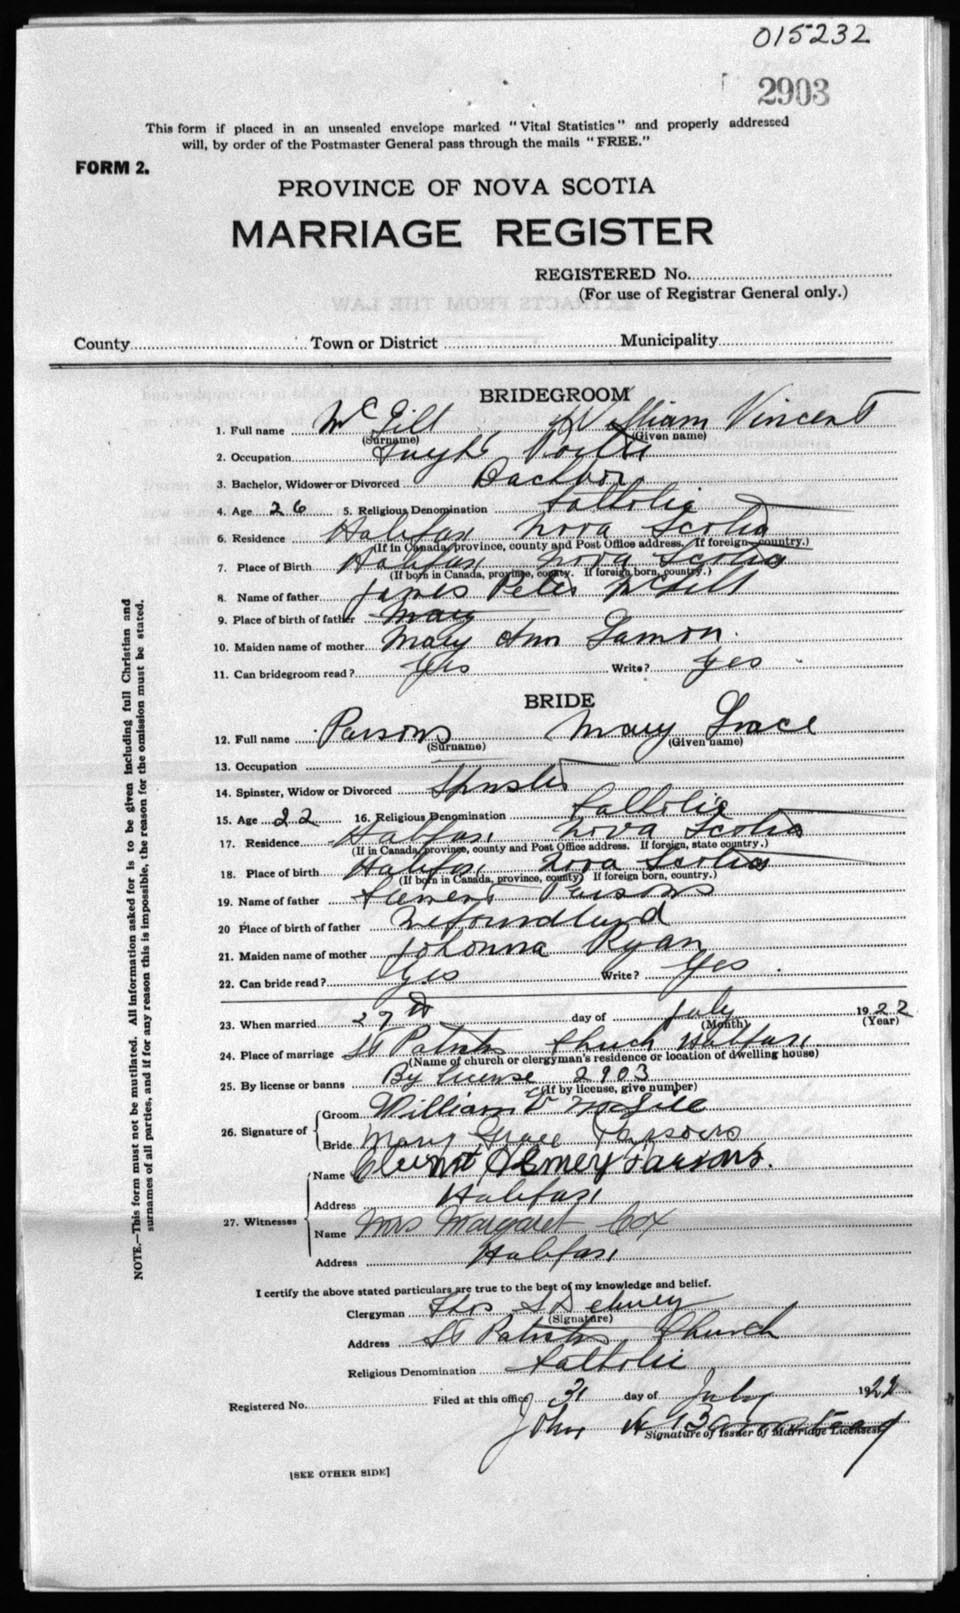 015232
2903
This form if placed in an unsealed envelope marked "Vital Statistics" and properly addressed
will, by order of the Postmaster General pass through the mails "FREE."
FORM 2.
PROVINCE OF NOVA SCOTIA
MARRIAGE REGISTER
REGISTERED No.
(For use of Registrar General only.)
County Town or District Municipality
BRIDEGROOM
1. Full name McGill William Vincent
(Surname) (Given name)
2. Occupation
3. Bachelor, Widower or Divorced Bachelor
4. Age 26 5. Religious Denomination Catholic
6. Residence Halifax Nova Scotia
(If in Canada, province, county and Post Office address. If foreign country.)
7. Place of Birth Halifax Nova Scotia
(If born in Canada, province, county. If foreign born, country.)
8. Name of father James Peter McGill
9. Place of birth of father Mary
10. Maiden name of mother Mary Ann
11. Can bridegroom read? Yes Write? Yes
BRIDE
12. Full name Parsons Mary Grace
(Surname) (Given name)
13. Occupation
14. Spinster, Widow or Divorced Spinster
15. Age 22 16. Religious Denomination Catholic
17. Residence Halifax Nova Scotia
(If in Canada, province, county and Post Office address. If foreign, state country.)
18. Place of birth Halifax Nova Scotia
(If born in Canada, province, county) If foreign born, country.)
19. Name of father Clement Parsons
20 Place of birth of father Newfoundland
21. Maiden name of mother Johanna Ryan
22. Can bride read? Yes Write? Yes.
23. When married 27th day of July 1922
(Month) (Year)
24. Place of marriage St Patricks Church Halifax
(Name of church or clergyman's residence or location of dwelling house)
25. By license or banns By License 2903
(If by license, give number)
26. Signature of Groom William V McGill
Bride Mary Grace Parsons
27. Witnesses Name Clement Parsons.
Address Halifax
Name Mrs Margaret Cox
Address Halifax
I certify the above stated particulars are true to the best of my knowledge and belief.
Clergyman Thos
(Signature)
Address St Patricks Church
Religious Denomination Catholic
Registered No. Filed at this office 31 day of July 1922
John
Signature of Issuer of Marriage Licenses
[SEE OTHER SIDE]
NOTE.—This form must not be mutilated. All information asked for is to be given including full Christian and
surnames of all parties, and if for any reason this is impossible, the reason for the omission must be stated.